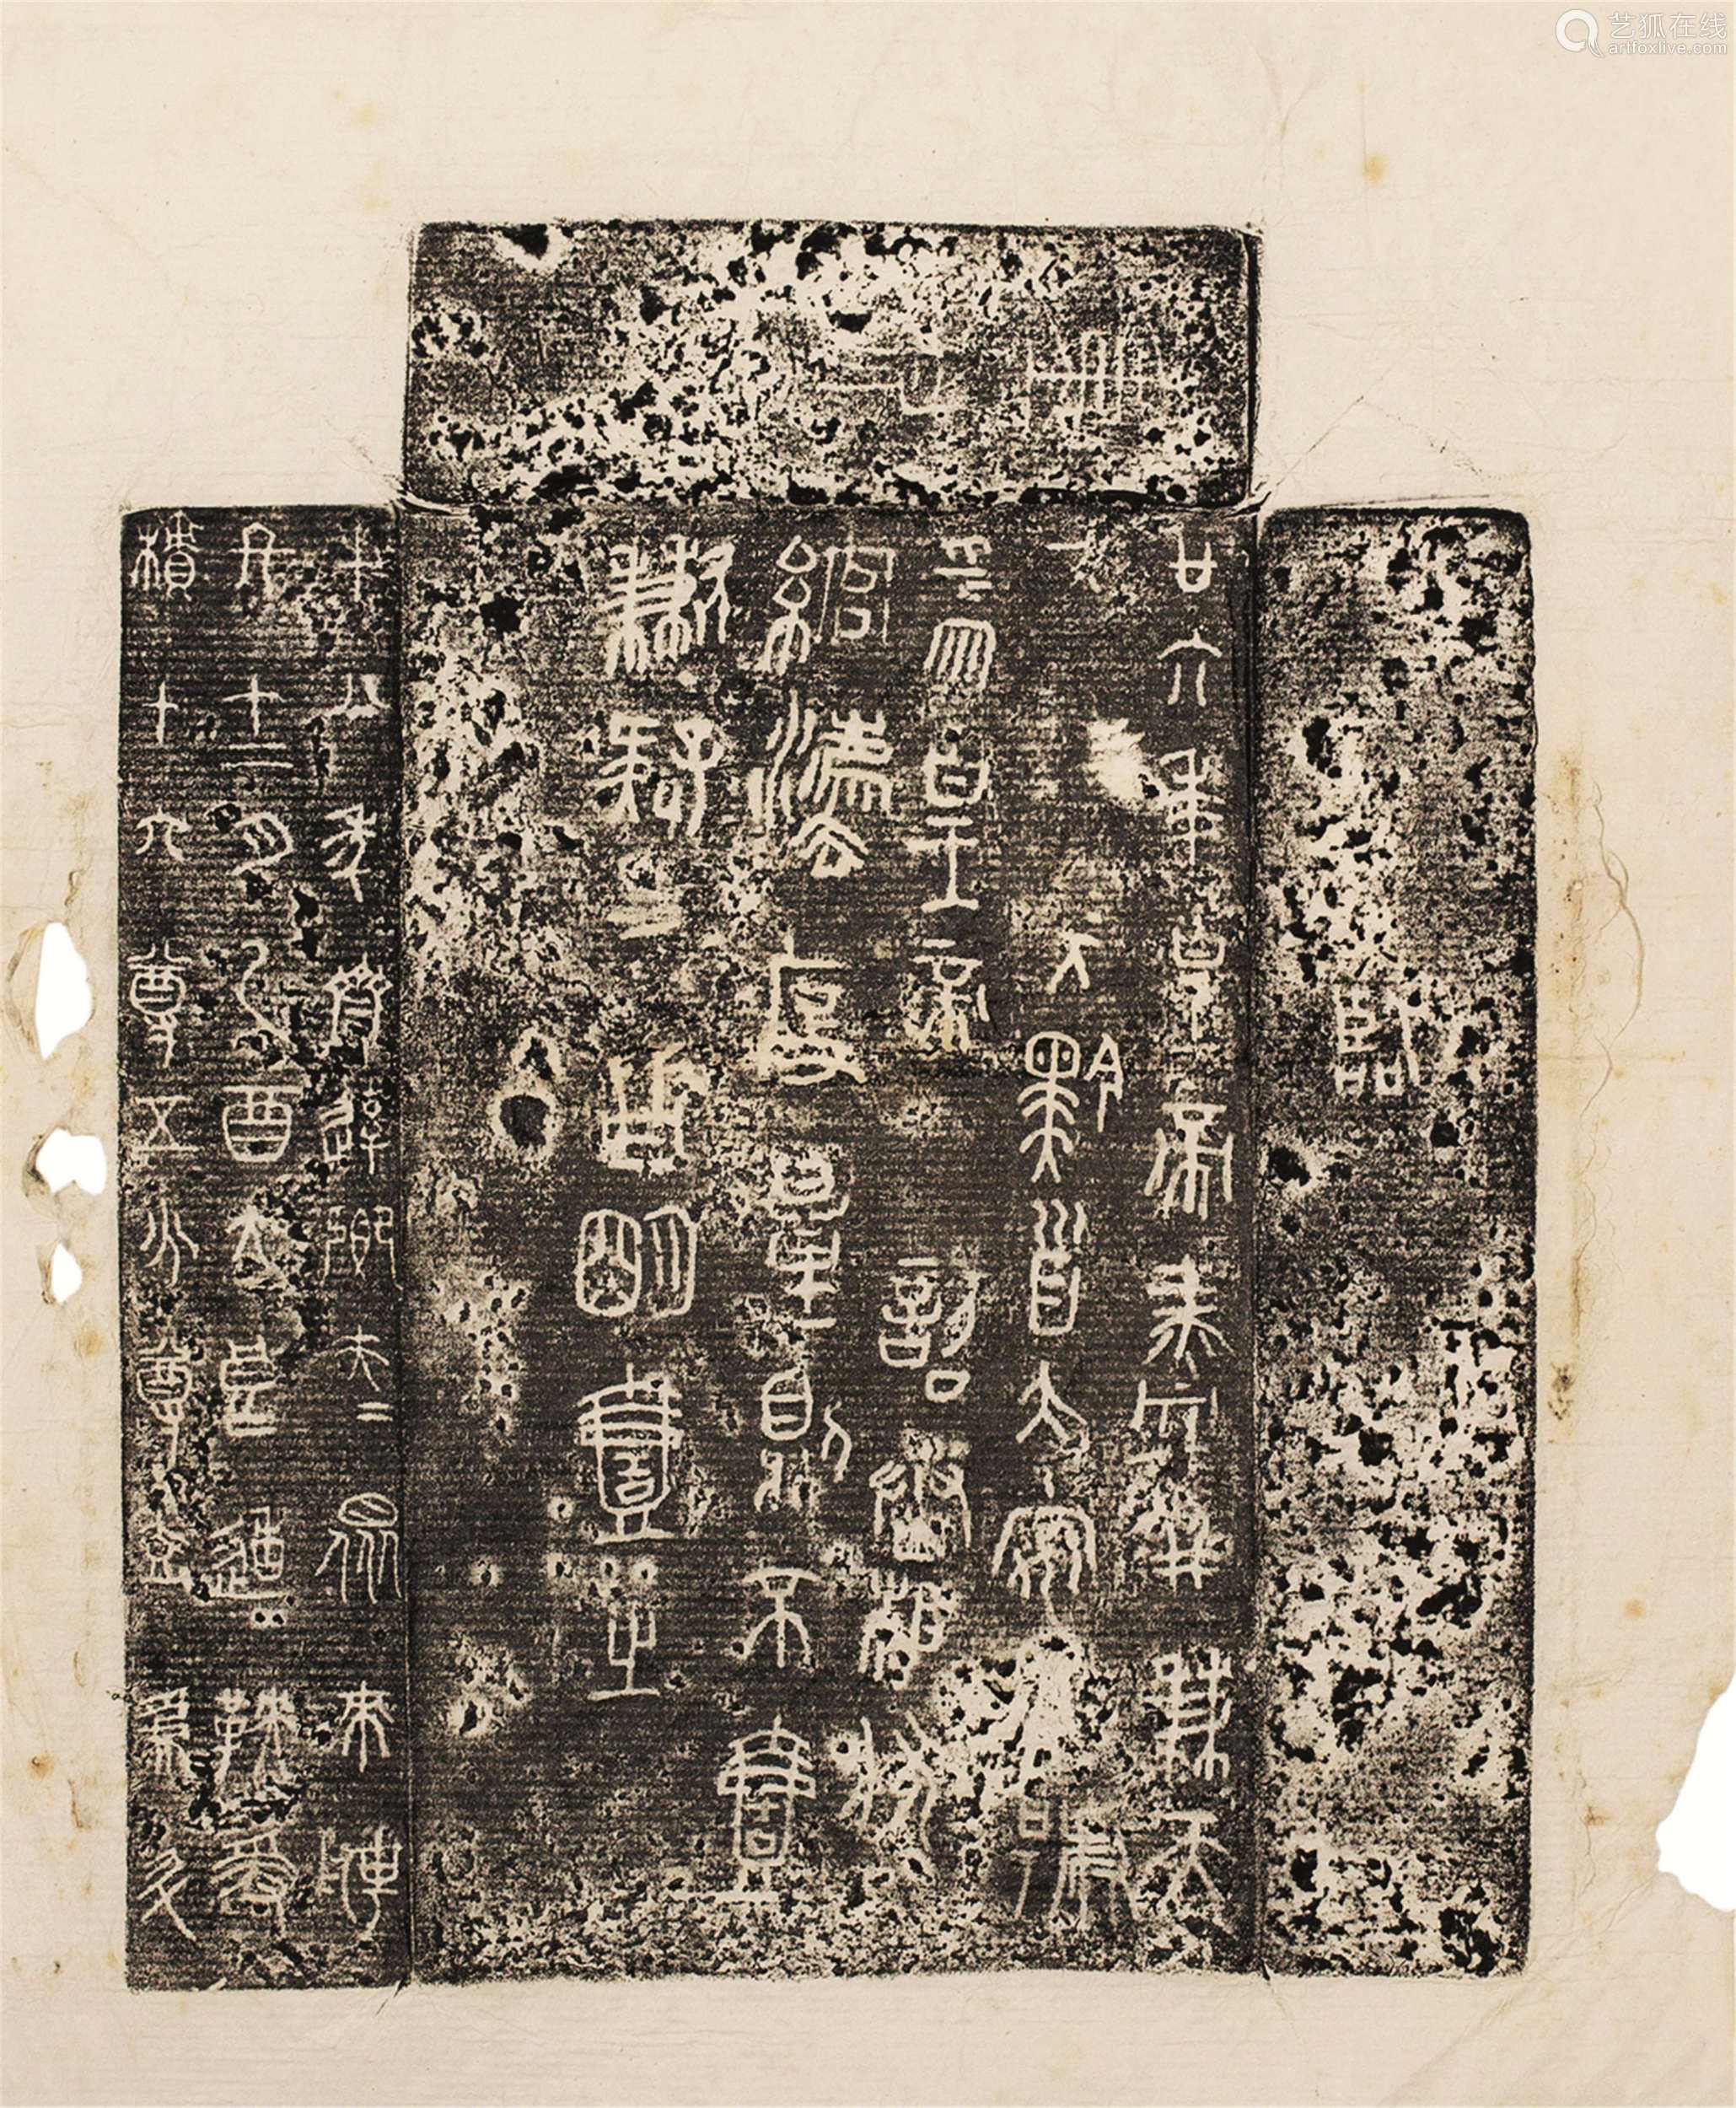 艺狐在线
artfoxlive.com
重泉
臨
廿六年皇帝盡并兼天
黔首大安立號
為皇帝乃詔丞相狀
綰灋度量則不壹
歉疑者皆明壹之
十八年齊遣卿大夫眾來聘
冬十二月乙酉大良造鞅爰
積十六尊五分尊壹為升